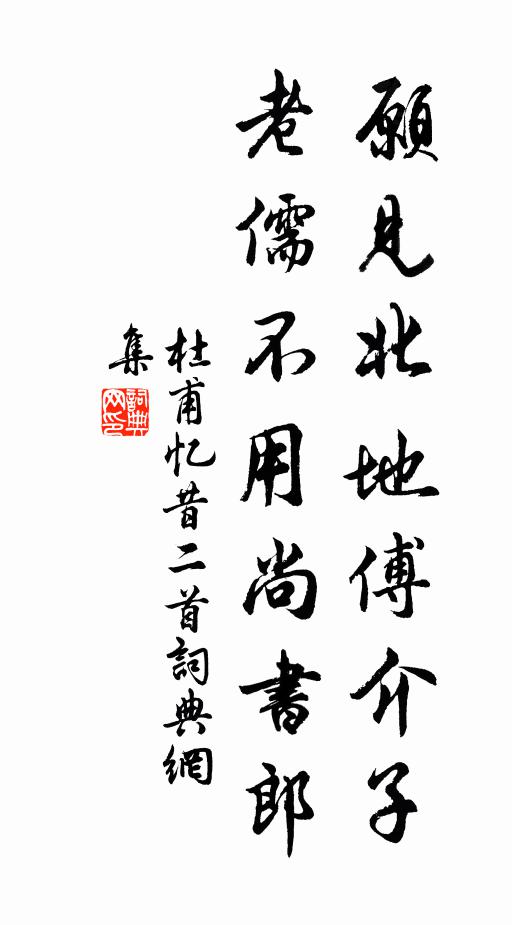 願見北地傅介子
老儒不用尚書郎
杜甫忆昔二首詞典網
集
詞典
网印